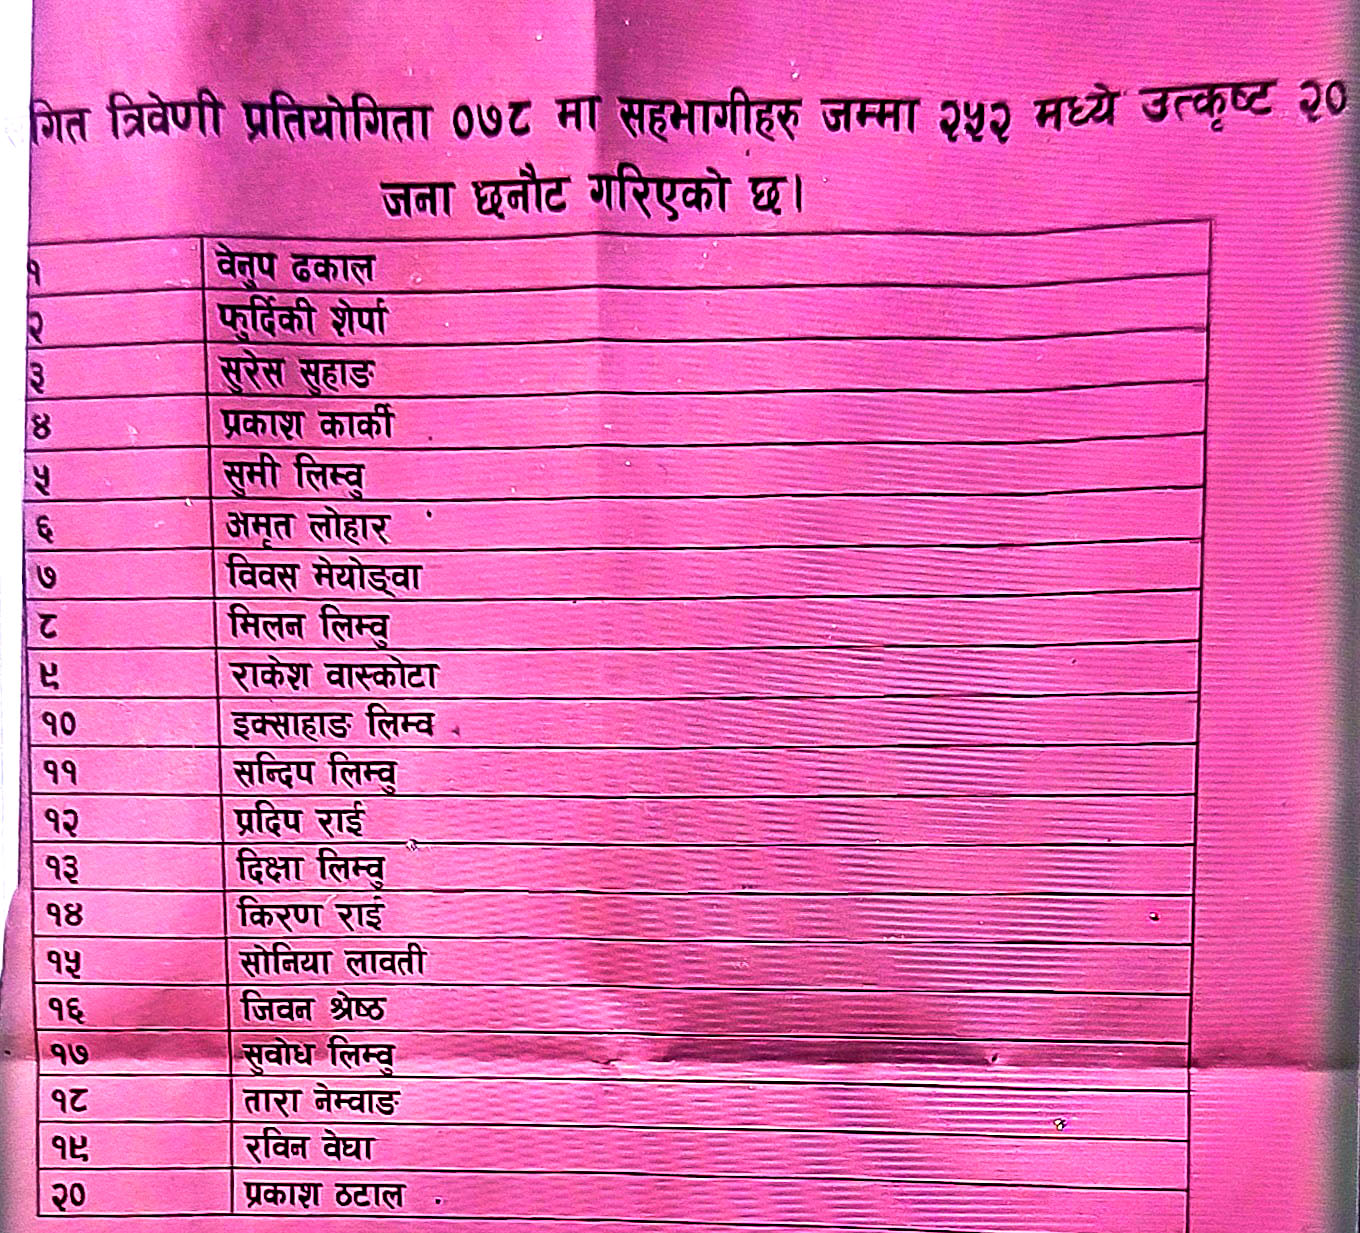 गित त्रिवेणी प्रतियोगिता ०७८ मा सहभागीहरु जम्मा २५२ मध्ये उत्कृष्ट २०
जना छनौट गरिएको छ।
१ वेनुप ढकाल
२ फुर्दिकी शेर्पा
३ सुरेस सुहाङ
४ प्रकाश कार्की
५ सुमी लिम्वु
६ अमृत लोहार
७ विवस मेयोङ्वा
८ मिलन लिम्वु
९ राकेश वास्कोटा
१० इक्साहाङ लिम्व
११ सन्दिप लिम्वु
१२ प्रदिप राई
१३ दिक्षा लिम्वु
१४ किरण राई
१५ सोनिया लावती
१६ जिवन श्रेष्ठ
१७ सुवोध लिम्वु
१८ तारा नेम्वाङ
१९ रविन वेघा
२० प्रकाश ठटाल